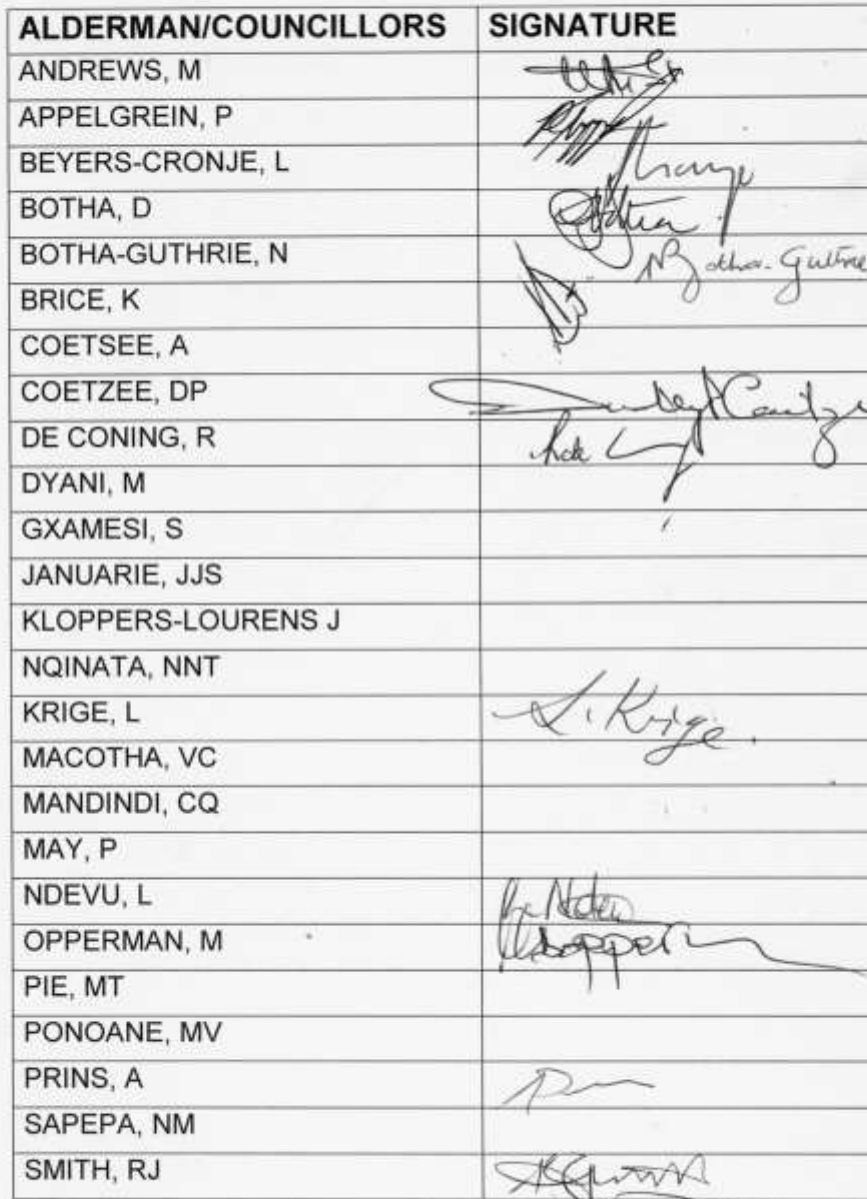 ALDERMAN/COUNCILLORS SIGNATURE
ANDREWS, M
APPELGREIN, P
BEYERS-CRONJE, L
BOTHA, D
BOTHA-GUTHRIE, N NBotha-Guthrie
BRICE, K
COETSEE, A
COETZEE, DP
DE CONING, R
DYANI, M
GXAMESI, S
JANUARIE, JJS
KLOPPERS-LOURENS J
NQINATA, NNT
KRIGE, L L. Krige.
MACOTHA, VC
MANDINDI, CQ
MAY, P
NDEVU, L
OPPERMAN, M
PIE, MT
PONOANE, MV
PRINS, A
SAPEPA, NM
SMITH, RJ